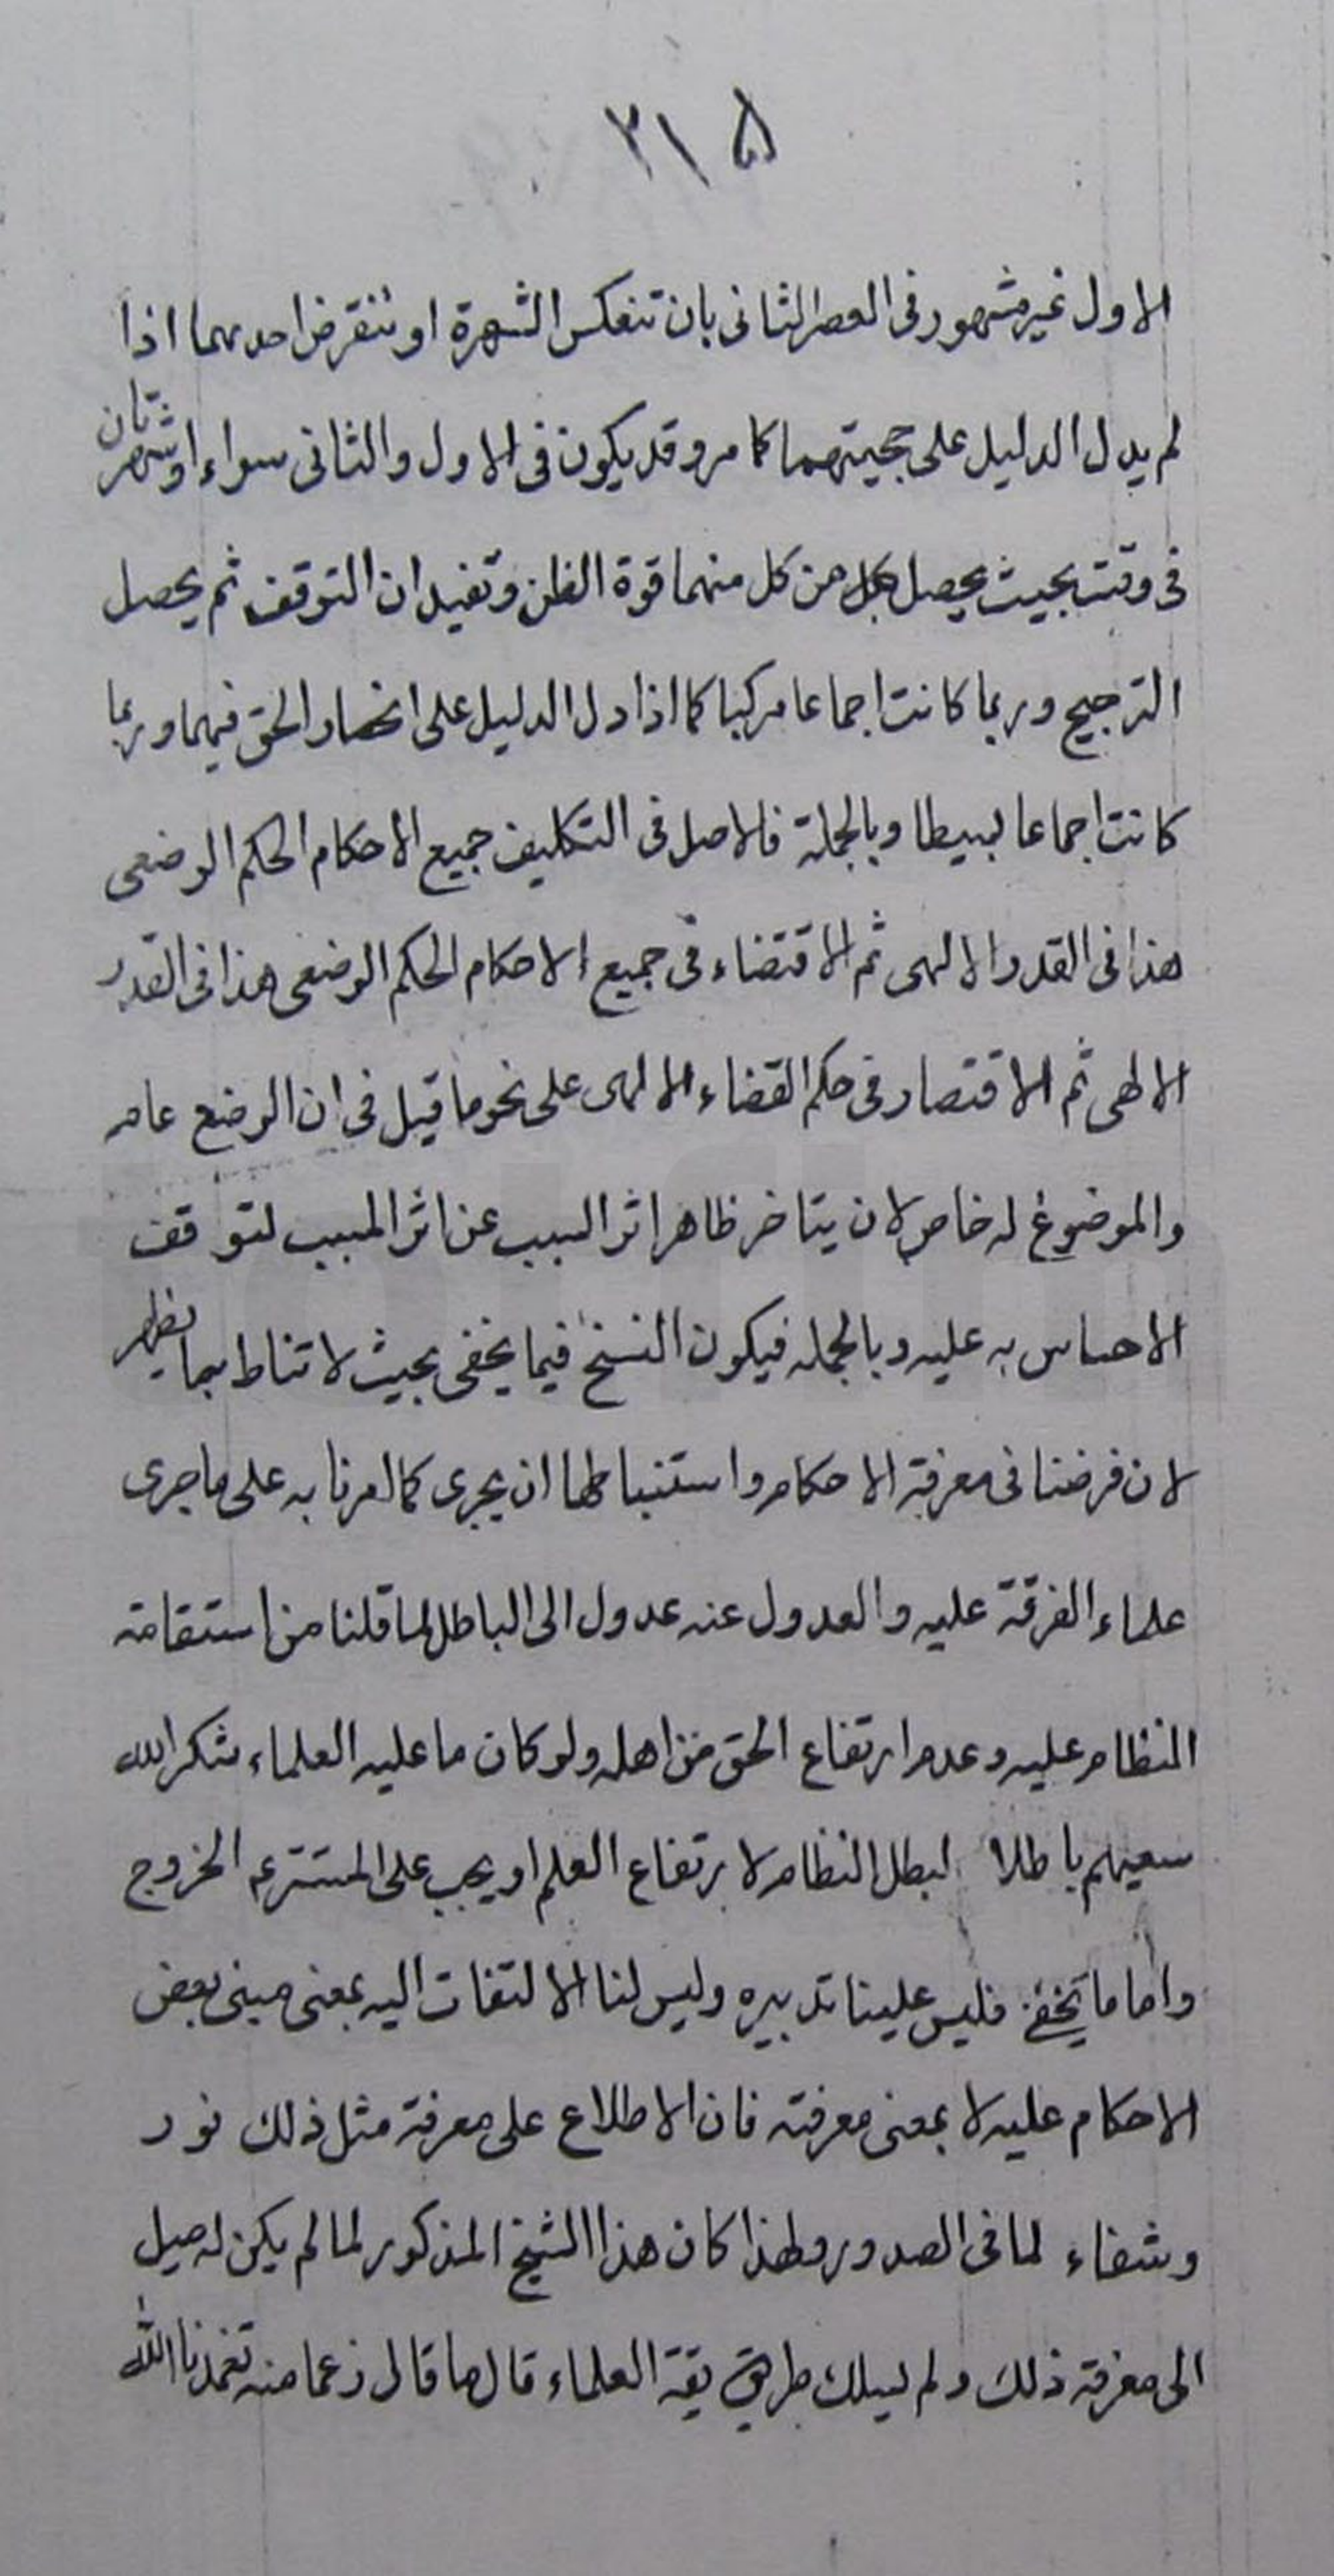 ٣١٥
الاول غير مشهور فى العصر الثانى بان تنعكس الشهرة او تنقرض احدىهما اذا
لم يدل الدليل على حجيتهما كما مر و قد يكون فى الاول والثانى سواء او شهرتان
فى وقت بحيث يحصل بكل من كل منهما قوة الظن و تفيد ان التوقف ثم يحصل
الترجيح و ربما كانت اجماعا مركبا كما اذا دل الدليل على انحصار الحق فيهما و ربما
كانت اجماعا بسيطا و بالجملة فالاصل فى التكليف جميع الاحكام الحكم الوضعى
هذا فى القدر الالهى ثم الاقتضاء فى جميع الاحكام الحكم الوضعى هذا فى القدر
الالهى ثم الاقتصار فى حكم القضاء الالهى على نحو ما قيل فى ان الوضع عام
والموضوع له خاص لان يتاخر ظاهر اثر السبب عن اثر المسبب لتوقف
الاحساس به عليه و بالجمله فيكون النسخ فيما يخفى بحيث لا تناط بما يظهر
لان فرضنا فى معرفة الاحكام و استنباطها ان يجرى كما امرنا به على ما جرى
علماء الفرقة عليه والعدول عنه عدول الى الباطل لما قلنا من استقامة
النظام عليه و عدم ارتفاع الحق من اهله ولو كان ما عليه العلماء شكر الله
سعيهم باطلا لبطل النظام لارتفاع العلم او يجب على المستتر عم الخروج
واما ما يخفى فليس علينا تدبيره وليس لنا الالتفات اليه بمعنى مبنى بعض
الاحكام عليه لا بمعنى معرفته فان الاطلاع على معرفة مثل ذلك نور
وشفاء لما فى الصدور و لهذا كان هذا الشيخ المذكور لما لم يكن له ميل
الى معرفة ذلك و لم يسلك طريق يقة العلماء قال ما قال زعما منه تغمدنا الله